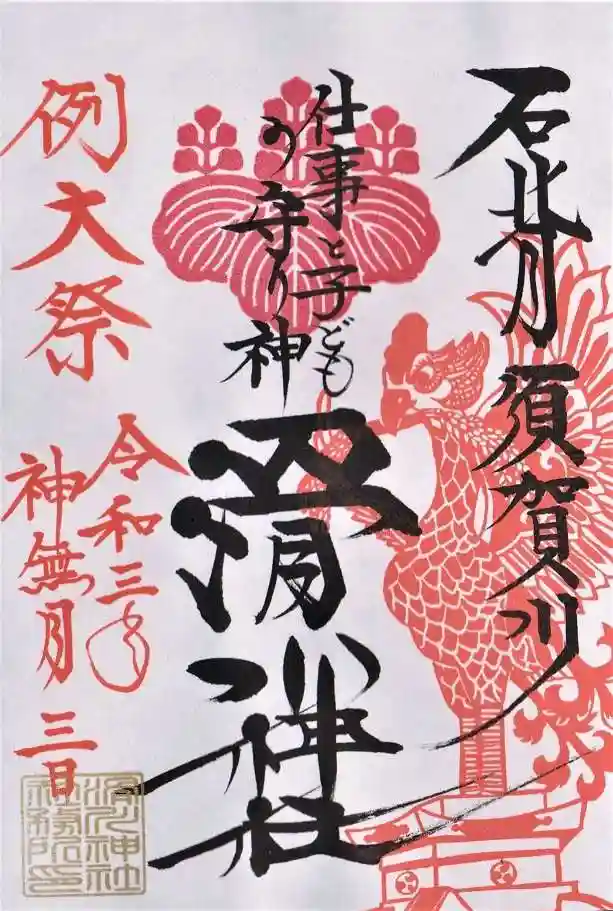 石背 須賀川
仕事と子ども
の守り神
滑川神社
例大祭
令和三年
神無月 三日
滑川神社
社務所印